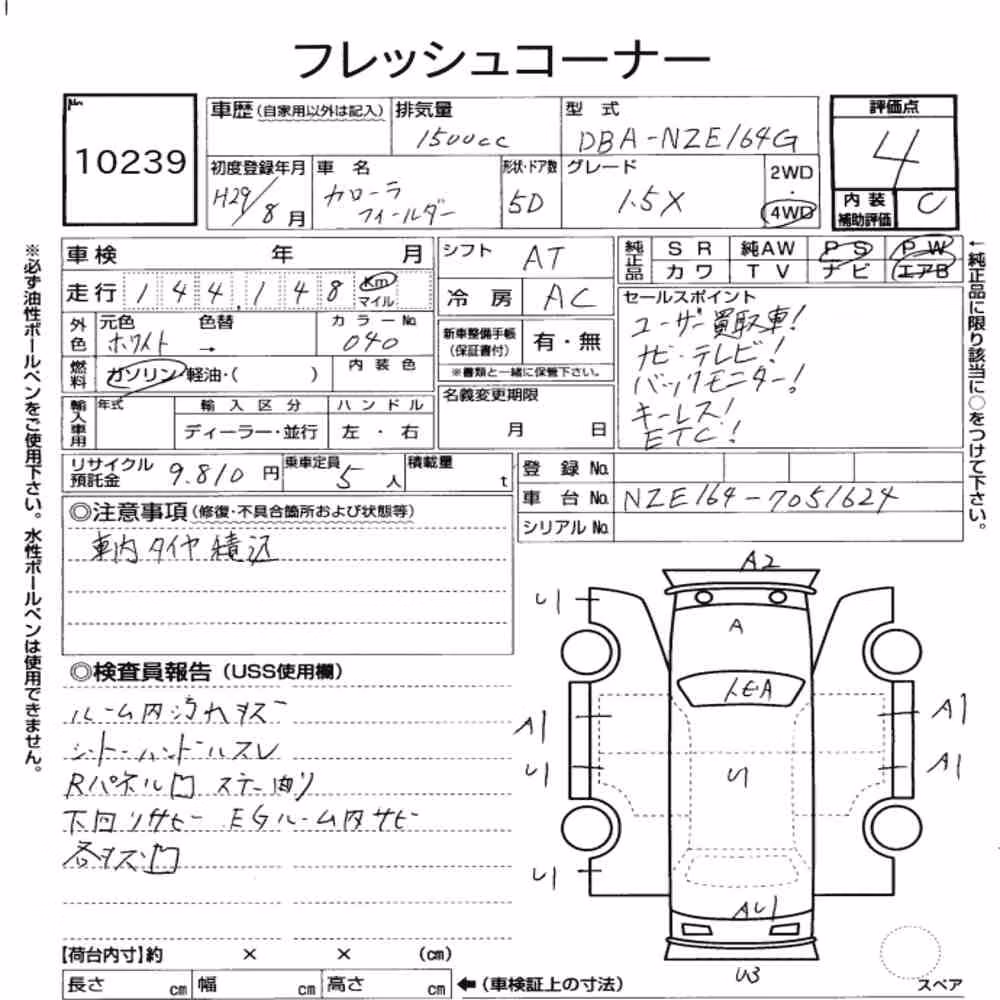 フレッシュコーナー
10239
車歴（自家用以外は記入）
排気量
1500cc
型 式
DBA-NZE164G
評価点
4
初度登録年月
H29/8月
車 名
カローラ
フィールダー
形状・ドア数
5D
グレード
1.5X
2WD
・
4WD
内 装
補助評価
C
車検 年 月
走行 144,148 Km
マイル
外色
元色 色替
ホワイト →
カラーNo.
040
燃料
ガソリン・軽油・( )
内 装 色
輸入車用
年式
輸 入 区 分
ディーラー・並行
ハ ン ド ル
左 ・ 右
リサイクル
預託金
9.810円
乗車定員
5人
積載量
t
シフト
AT
冷 房
AC
新車整備手帳
(保証書付)
有・無
※書類と一緒に保管下さい。
名義変更期限
月 日
純正品
S R 純AW P S P W
カ ワ T V ナ ビ エアB
セールスポイント
ユーザー買取車！
ナビ・テレビ！
バックモニター！
キーレス！
ETC！
登 録 No.
車 台 No. NZE164-7051624
シリアル No.
◎注意事項（修復・不具合箇所および状態等）
車内タイヤ積込
◎検査員報告（USS使用欄）
ルーム内汚れキズ
シート ハンドルスレ
Rパネル凹 ステー曲り
下回リサビ EGルーム内サビ
各キズ凹
【荷台内寸】約 × × (cm)
長さ cm 幅 cm 高さ cm
←（車検証上の寸法）
スペア
A2
U1
A
A1
A1
U1
U1
A1
U1
AU1
U3
※必ず油性ボールペンをご使用下さい。水性ボールペンは使用できません。
←純正品に限り該当に○をつけて下さい。